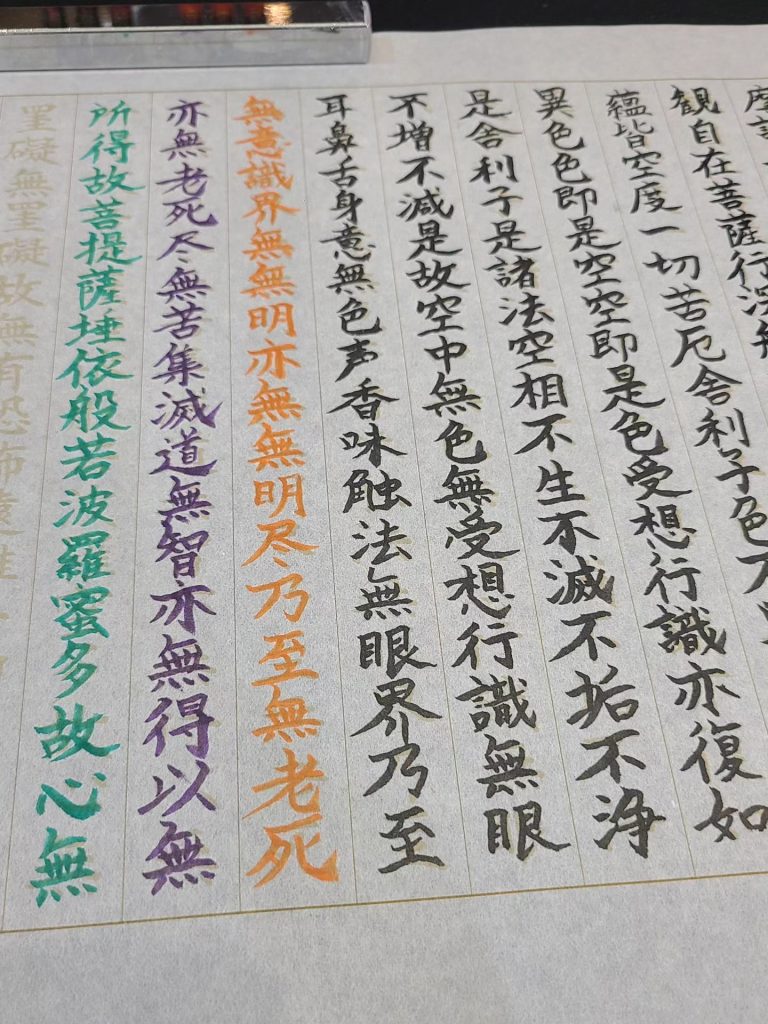 摩訶
観自在菩薩行深般
蘊皆空度一切苦厄舎利子色不
異色色即是空空即是色受想行識亦復如
是舎利子是諸法空相不生不滅不垢不浄
不増不減是故空中無色無受想行識無眼
耳鼻舌身意無色声香味触法無眼界乃至
無意識界無無明亦無無明尽乃至無老死
亦無老死尽無苦集滅道無智亦無得以無
所得故菩提薩埵依般若波羅蜜多故心無
罣礙無罣礙故無有恐怖遠離一